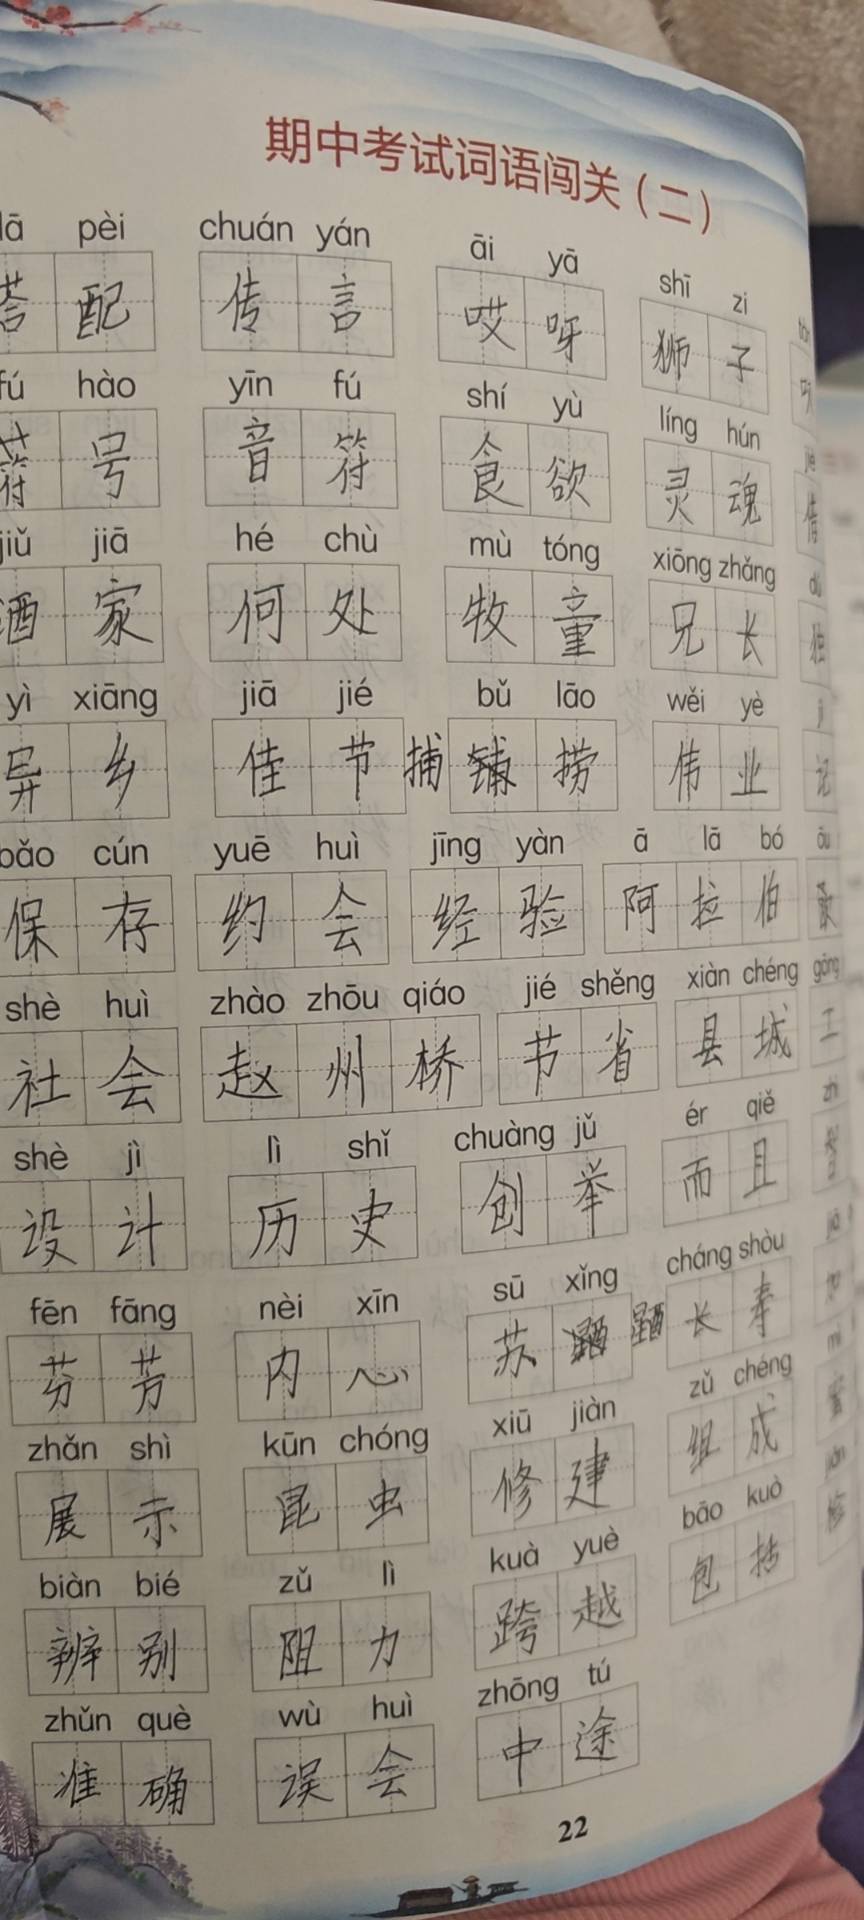 期中考试词语闯关（二）
pèi chuán yán āi yā shī zi
搭 配 传 言 哎 呀 狮 子
fú hào yīn fú shí yù líng hún
符 号 音 符 食 欲 灵 魂
jiǔ jiā hé chù mù tóng xiōng zhǎng
酒 家 何 处 牧 童 兄 长
yì xiāng jiā jié bǔ lāo wěi yè
异 乡 佳 节 捕 铺 捞 伟 业 记
bǎo cún yuē huì jīng yàn ā lā bó
保 存 约 会 经 验 阿 拉 伯
shè huì zhào zhōu qiáo jié shěng xiàn chéng gōng
社 会 赵 州 桥 节 省 县 城 工
shè jì lì shǐ chuàng jǔ ér qiě
设 计 历 史 创 举 而 且
fēn fāng nèi xīn sū xǐng cháng shòu
芬 芳 内 心 苏 长 寿
zhǎn shì kūn chóng xiū jiàn zǔ chéng
展 示 昆 虫 修 建 组 成
biàn bié zǔ lì kuà yuè bāo kuò
辨 别 阻 力 跨 越 包 括
zhǔn què wù huì zhōng tú
准 确 误 会 中 途
22